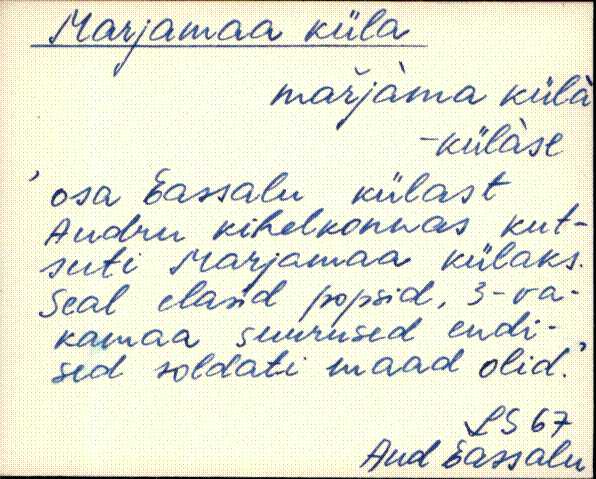 Marjamaa küla
mar̆jàma külà
-külàse
'osa Eassalu külast
Audru kihelkonnas kut-
suti Marjamaa külaks.
Seal elasid popsid, 3-va-
kamaa suurused endi-
sed soldati maad olid.'
LS 67
Aud Eassalu